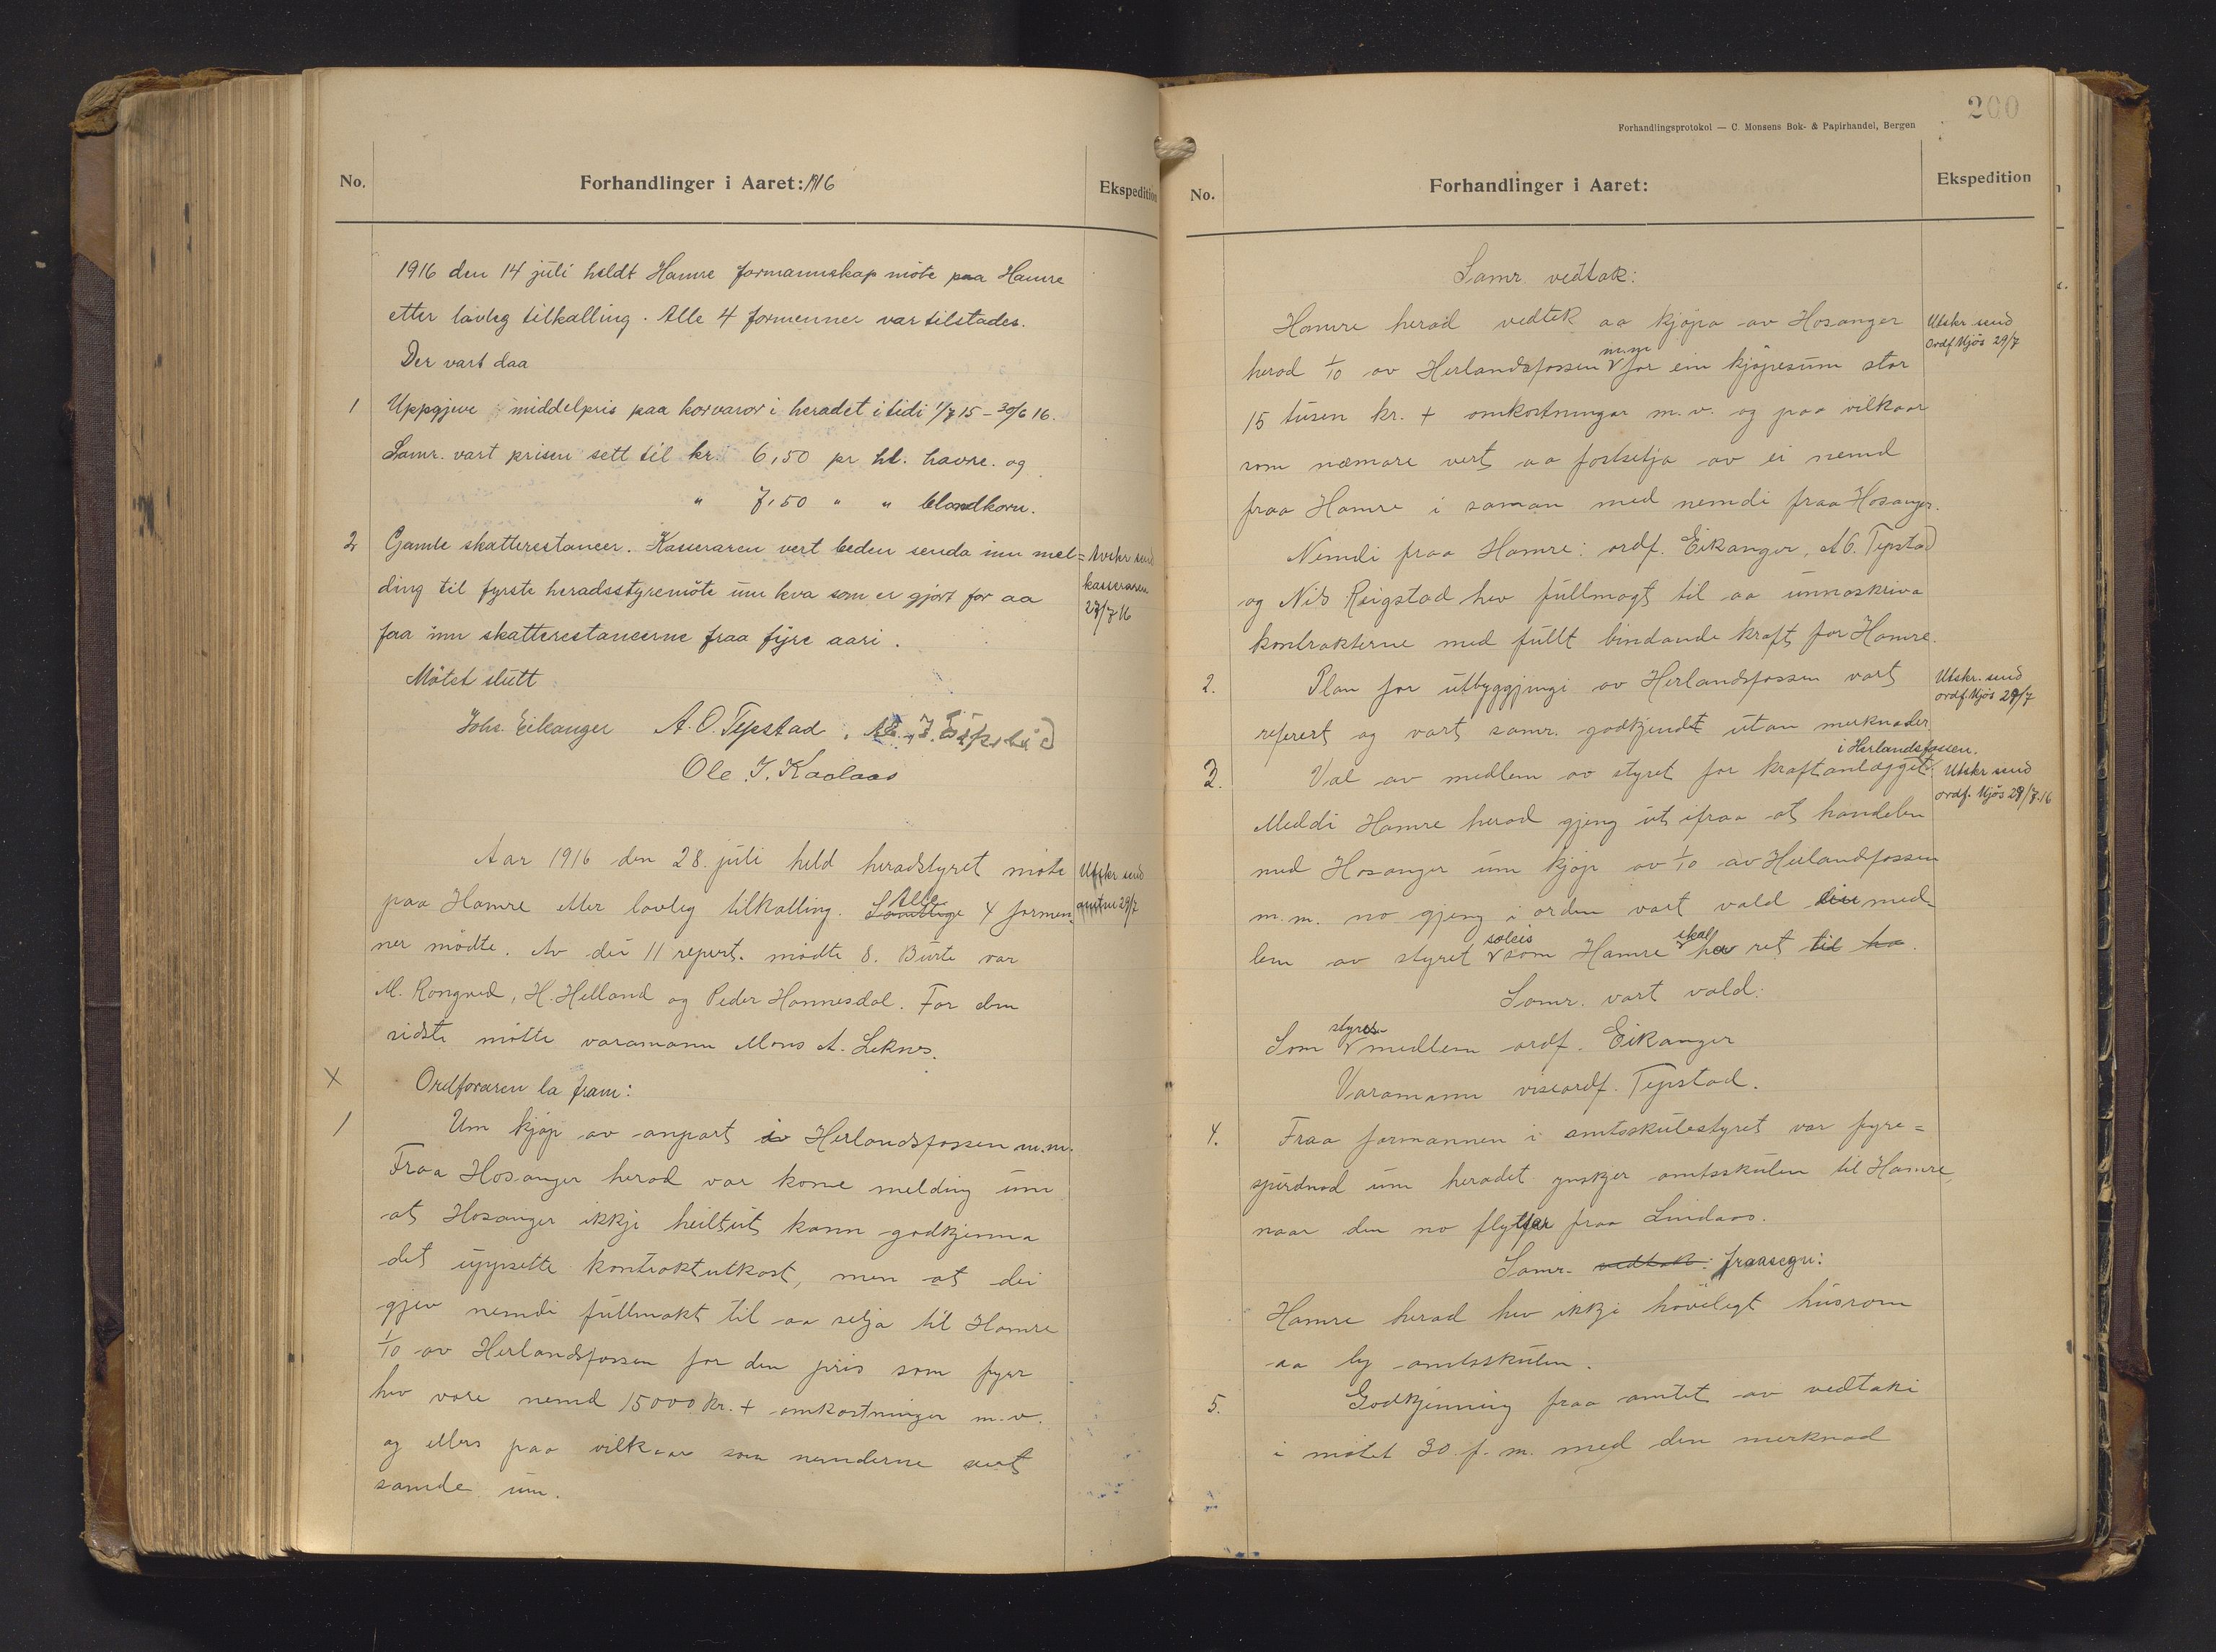 No.
Forhandlinger i Aaret: 1916
Ekspedition
1916 den 14 juli heldt Hamre formannskap möte paa Hamre
etter lovleg tilkalling. Alle 4 formenner var tilstades.
Der vart daa
1 Uppgjeve middelpris paa kornvaror i heradet i tidi 1/7 15 – 30/6 16.
Samr. vart prisen sett til kr. 6,50 pr hl. havre. og
" 7,50 " " blandkorn.
2 Gamle skatterestancer. Kasseraren vert beden senda inn mel=
ding til fyrste heradsstyremöte um kva som er gjort for aa
faa inn skatterestancerne fraa fyrre aari.
Utskr send
kasseraren
29/7 16
Mötet slutt
Johs. Eikanger A. O. Tepstad
Ole J. Kaalaas
Aar 1916 den 28. juli held heradstyret möte
paa Hamre etter lovleg tilkalling. Samtlige Alle 4 formen-
ner mödte. Av dei 11 reprst. mödte 8. Burte var
M. Rongved, H. Helland og Peder Hannesdal. For den
sidste mötte varamann Mons A. Leknes.
Utskr send
amtm 29/7
X Ordföraren la fram:
1 Um kjöp av anpart i Herlandsfossen m.m.
Fraa Hosanger herad var kome melding um
at Hosanger ikkje heiltut kann godkjenna
det uppsette kontraktutkast, men at dei
gjev nemdi fullmakt til aa selja til Hamre
1/10 av Herlandsfossen for den pris som fyrr
hev vore nemd 15000 kr. + omkostninger m.v.
og ellers paa vilkaar som nemderne vert
samde um.
200
Forhandlingsprotokol — C. Monsens Bok- & Papirhandel, Bergen
No.
Forhandlinger i Aaret:
Ekspedition
Samr. vedtok:
Hamre herad vedtek aa kjöpa av Hosanger
herad 1/10 av Herlandsfossen m.m. for ein kjöpesum stor
15 tusen kr. + omkostningar m.v. og paa vilkaar
som næmare vert aa fastsetja av ei nemd
fraa Hamre i saman med nemdi fraa Hosanger.
Utskr send
Ordf. Mjös 29/7
Nemdi fraa Hamre: ordf. Eikanger, A O. Tepstad
og Nils Reigstad hev fullmagt til aa unnaskriva
kontrakterne med fullt bindande kraft for Hamre.
2. Plan for utbyggjingi av Herlandsfossen vart
referert og vart samr. godkjendt utan merknader.
Utskr. send
ordf. Mjös 29/7
3. Val av medlem av styret for kraftanlægget i Herlandsfossen.
Med di Hamre herad gjeng ut ifraa at handelen
med Hosanger um kjöp av 1/10 av Herlandsfossen
m.m. no gjeng i orden vart vald ein med-
lem av styret soleis som Hamre skal ha ret til ha.
Utskr send
ordf. Mjös 29/7.16
Samr. vart vald:
Som styresmedlem ordf. Eikanger
Varamann viseordf. Tepstad.
4. Fraa formannen i amtsskulestyret var fyre=
spurdnad um heradet ynskjer amtsskulen til Hamre,
naar den no flytjar fraa Lindaas.
Samr. vedtak: fraasegn:
Hamre herad hev ikkje höveligt husrom
aa by amtsskulen.
5. Godkjenning fraa amtet av vedtaki
i mötet 30. f. m. med den merknad